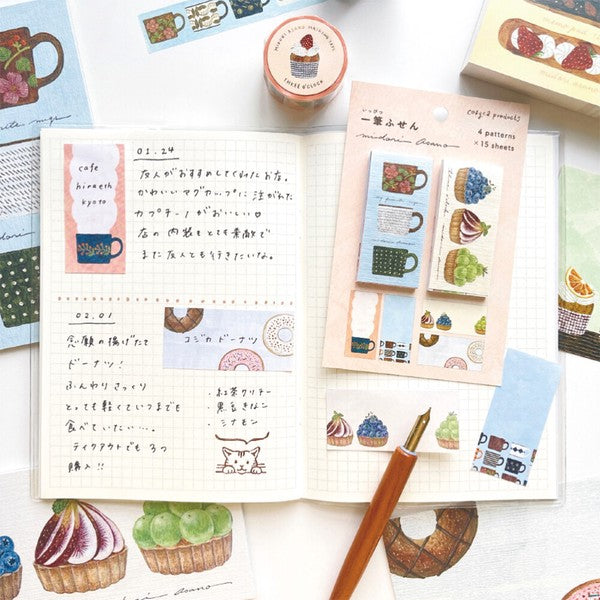 MIDORI ASANO MASKING TAPE
THREE O'CLOCK
midori asano
cozyca products
いっぴつ
一筆ふせん
midori asano
4 patterns
×15 sheets
cafe
hinaeth
kyoto
01.24
友人がおすすめしてくれたお店。
かわいいマグカップに注がれた
カプチーノがおいしい♡
店の内装もとても素敵で
また友人とも行きたいな。
02.01
念願の揚げたて
ドーナツ!
ふんわり さっくり
とっても軽くていつまでも
食べていたい….
テイクアウトでも 3つ
購入!!
コジカ ドーナツ
・紅茶クリーム
・黒豆きなこ
・シナモン
midori asano